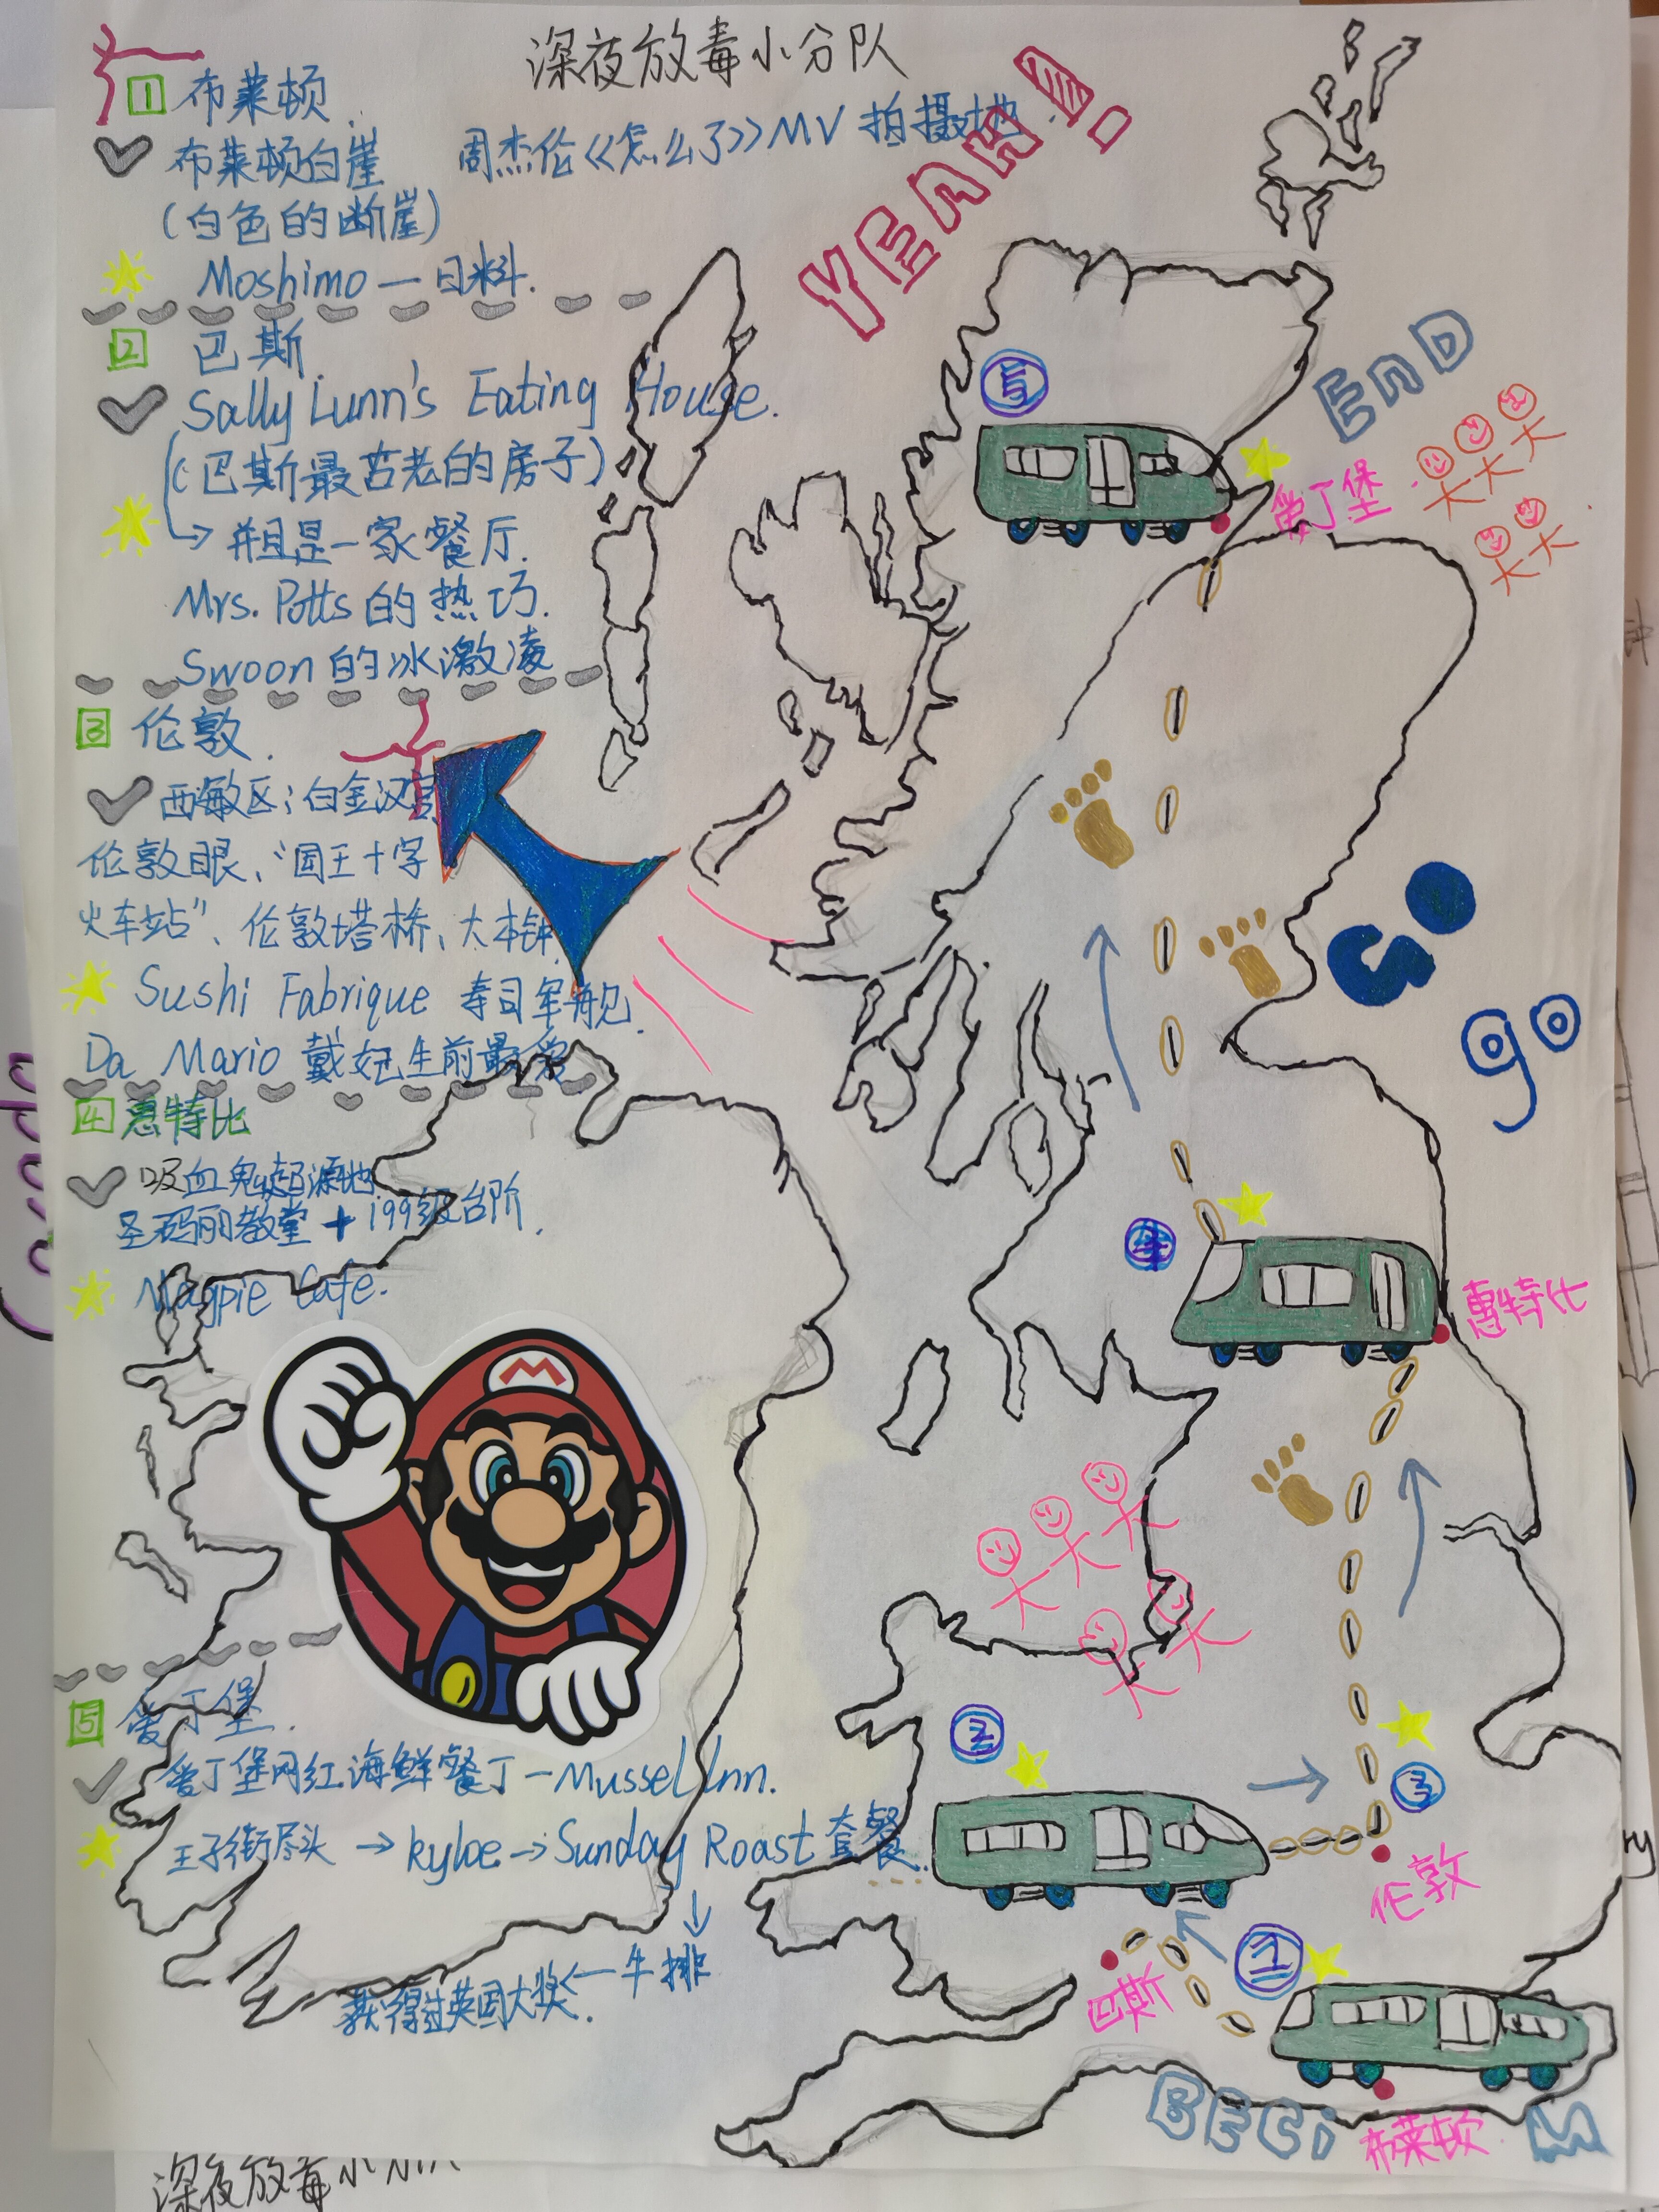 深夜放毒小分队
1 布莱顿.
布莱顿白崖 周杰伦《怎么了》MV 拍摄地.
(白色的断崖)
Moshimo — 日料.
YEAH!
2 巴斯.
Sally Lunn's Eating House.
(巴斯最古老的房子)
→ 并且是一家餐厅.
Mrs. Potts 的热巧.
Swoon 的冰激凌
3 伦敦.
西敏区: 白金汉宫
伦敦眼、“国王十字
火车站”、伦敦塔桥、大本钟
Sushi Fabrique 寿司军舰.
Da Mario 戴妃生前最爱
4 惠特比
吸血鬼起源地
圣玛丽教堂 + 199级台阶.
Magpie Cafe.
M
5 爱丁堡.
爱丁堡网红海鲜餐丁 — Mussel Inn.
王子街尽头 → kyloe → Sunday Roast 套餐.
↓
获得过英国大奖 ← 牛排
END
5
爱丁堡
GO
go
4
惠特比
2
3
伦敦
1
巴斯
BECiM
布莱顿
深夜放毒小